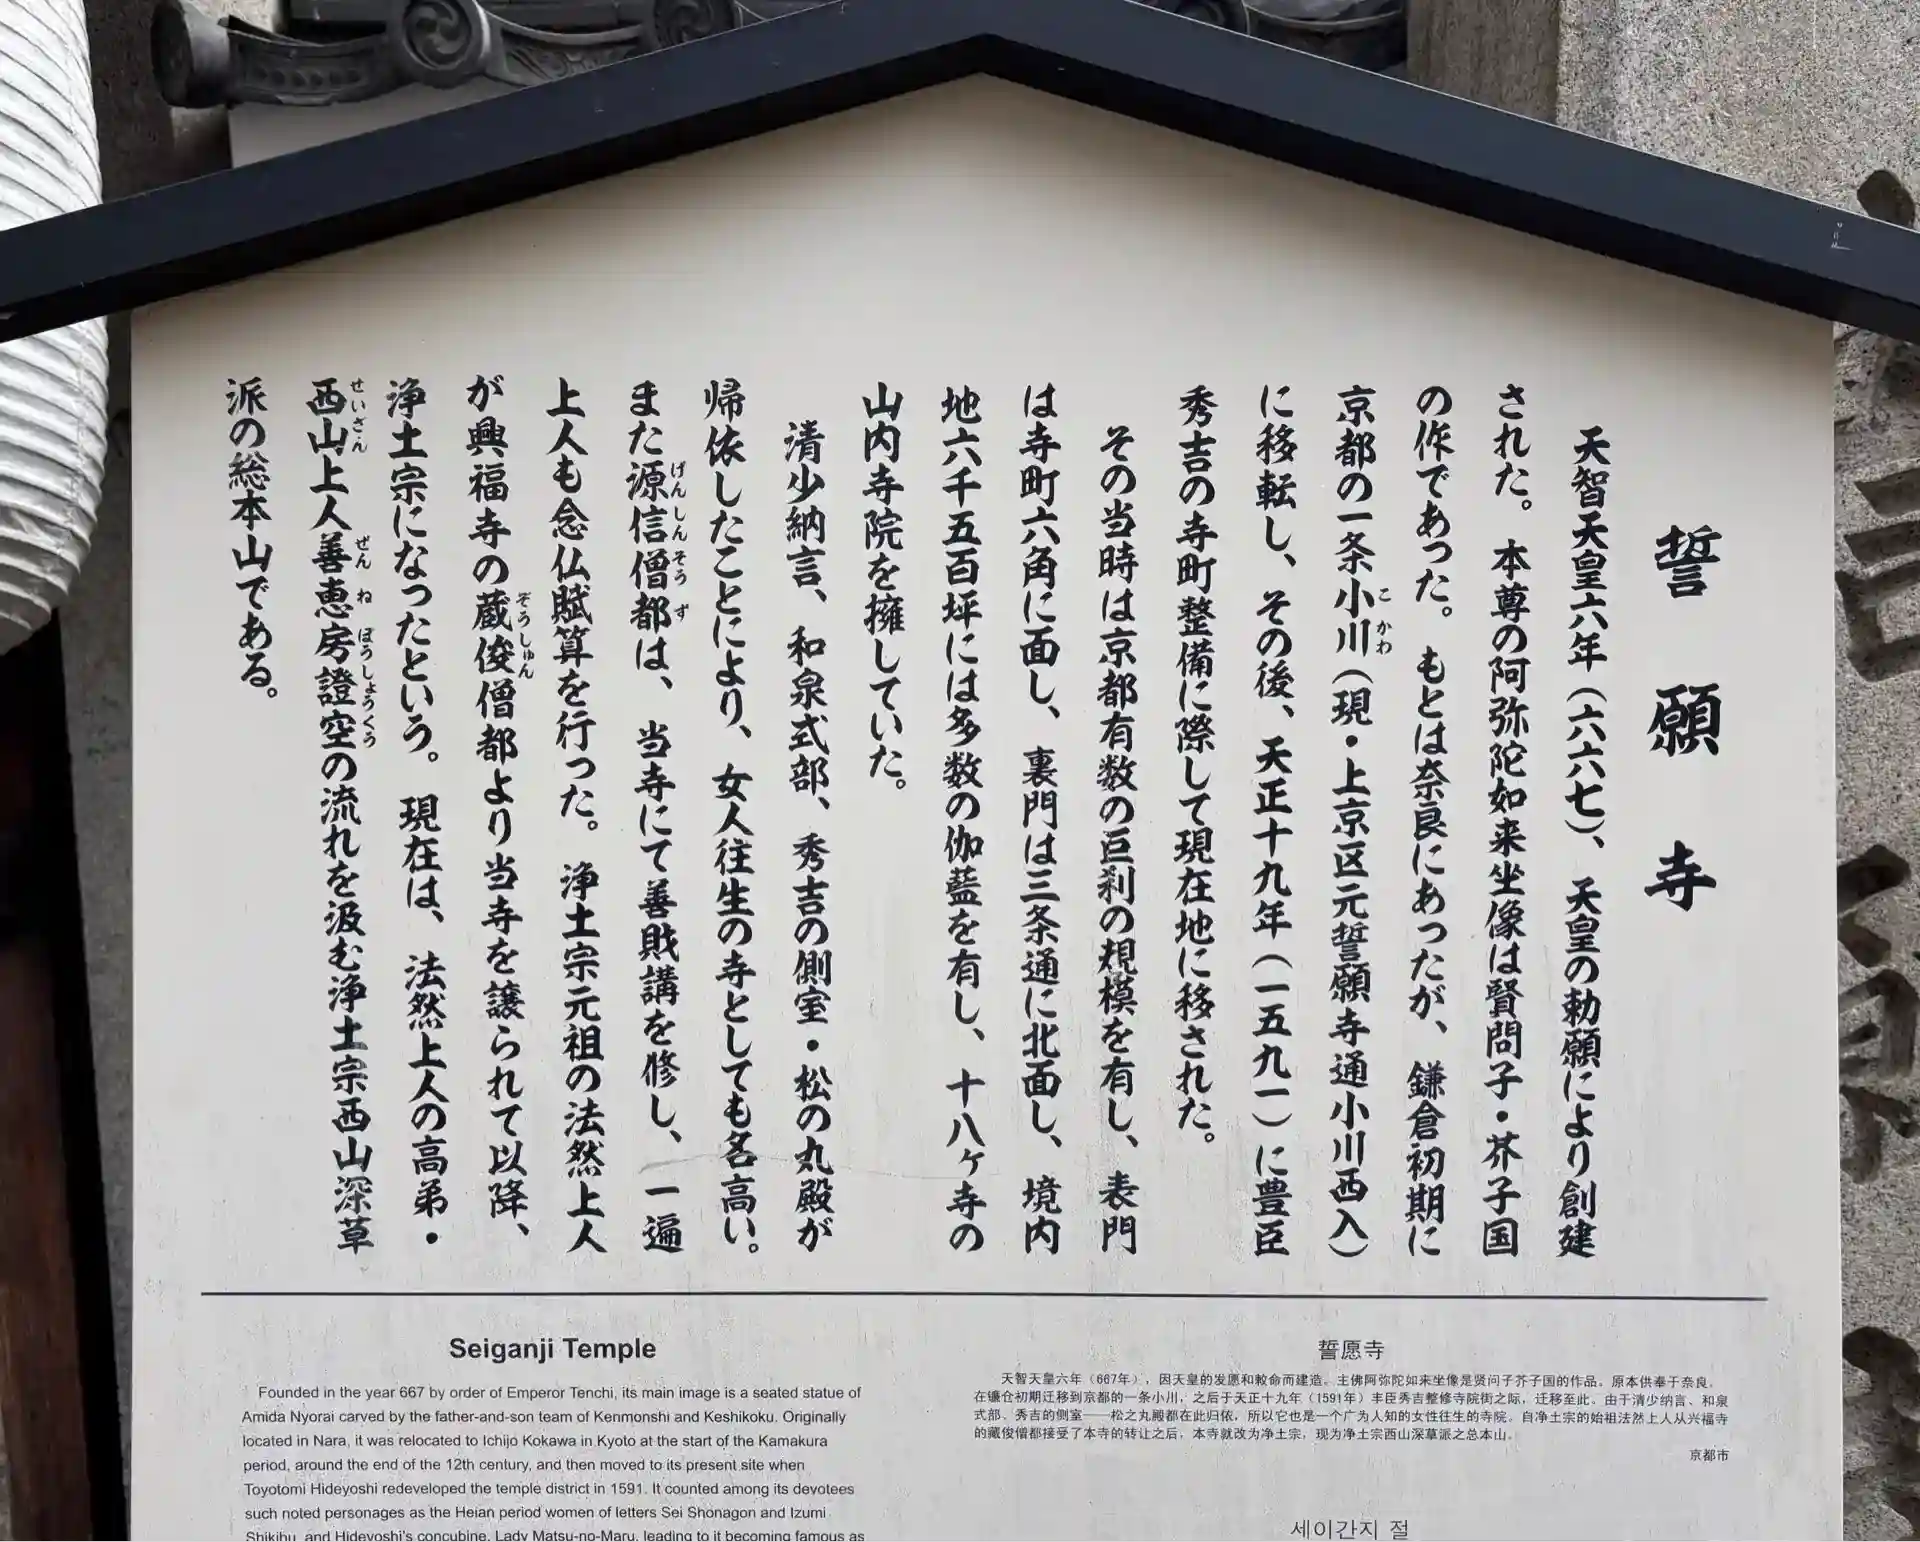 誓願寺
天智天皇六年(六六七)、天皇の勅願により創建
された。本尊の阿弥陀如来坐像は賢問子・芥子国
の作であった。もとは奈良にあったが、鎌倉初期に
京都の一条小川(現・上京区元誓願寺通小川西入)
こかわ
に移転し、その後、天正十九年(一五九一)に豊臣
秀吉の寺町整備に際して現在地に移された。
その当時は京都有数の巨刹の規模を有し、表門
は寺町六角に面し、裏門は三条通に北面し、境内
地六千五百坪には多数の伽藍を有し、十八ヶ寺の
山内寺院を擁していた。
清少納言、和泉式部、秀吉の側室・松の丸殿が
帰依したことにより、女人往生の寺としても名高い。
また源信僧都は、当寺にて善財講を修し、一遍
げんしんそうず
上人も念仏賦算を行った。浄土宗元祖の法然上人
が興福寺の蔵俊僧都より当寺を譲られて以降、
ぞうしゅん
浄土宗になったという。現在は、法然上人の高弟・
西山上人善恵房證空の流れを汲む浄土宗西山深草
せいざん ぜんねぼうしょうくう
派の総本山である。
Seiganji Temple
Founded in the year 667 by order of Emperor Tenchi, its main image is a seated statue of
Amida Nyorai carved by the father-and-son team of Kenmonshi and Keshikoku. Originally
located in Nara, it was relocated to Ichijo Kokawa in Kyoto at the start of the Kamakura
period, around the end of the 12th century, and then moved to its present site when
Toyotomi Hideyoshi redeveloped the temple district in 1591. It counted among its devotees
such noted personages as the Heian period women of letters Sei Shonagon and Izumi
Shikibu, and Hideyoshi's concubine, Lady Matsu-no-Maru, leading to it becoming famous as
誓愿寺
天智天皇六年（667年），因天皇的发愿和敕命而建造。主佛阿弥陀如来坐像是贤问子芥子国的作品。原本供奉于奈良。
在镰仓初期迁移到京都的一条小川，之后于天正十九年（1591年）丰臣秀吉整修寺院街之际，迁移至此。由于清少纳言、和泉
式部、秀吉的侧室——松之丸殿都在此归依，所以它也是一个广为人知的女性往生的寺院。自净土宗的始祖法然上人从兴福寺
的藏俊僧都接受了本寺的转让之后，本寺就改为净土宗，现为净土宗西山深草派之总本山。
京都市
세이간지 절